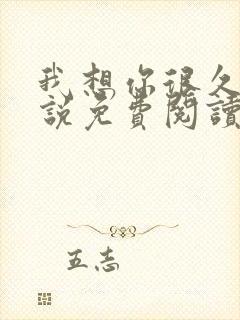 我想你很久
說免費閱讀
五志